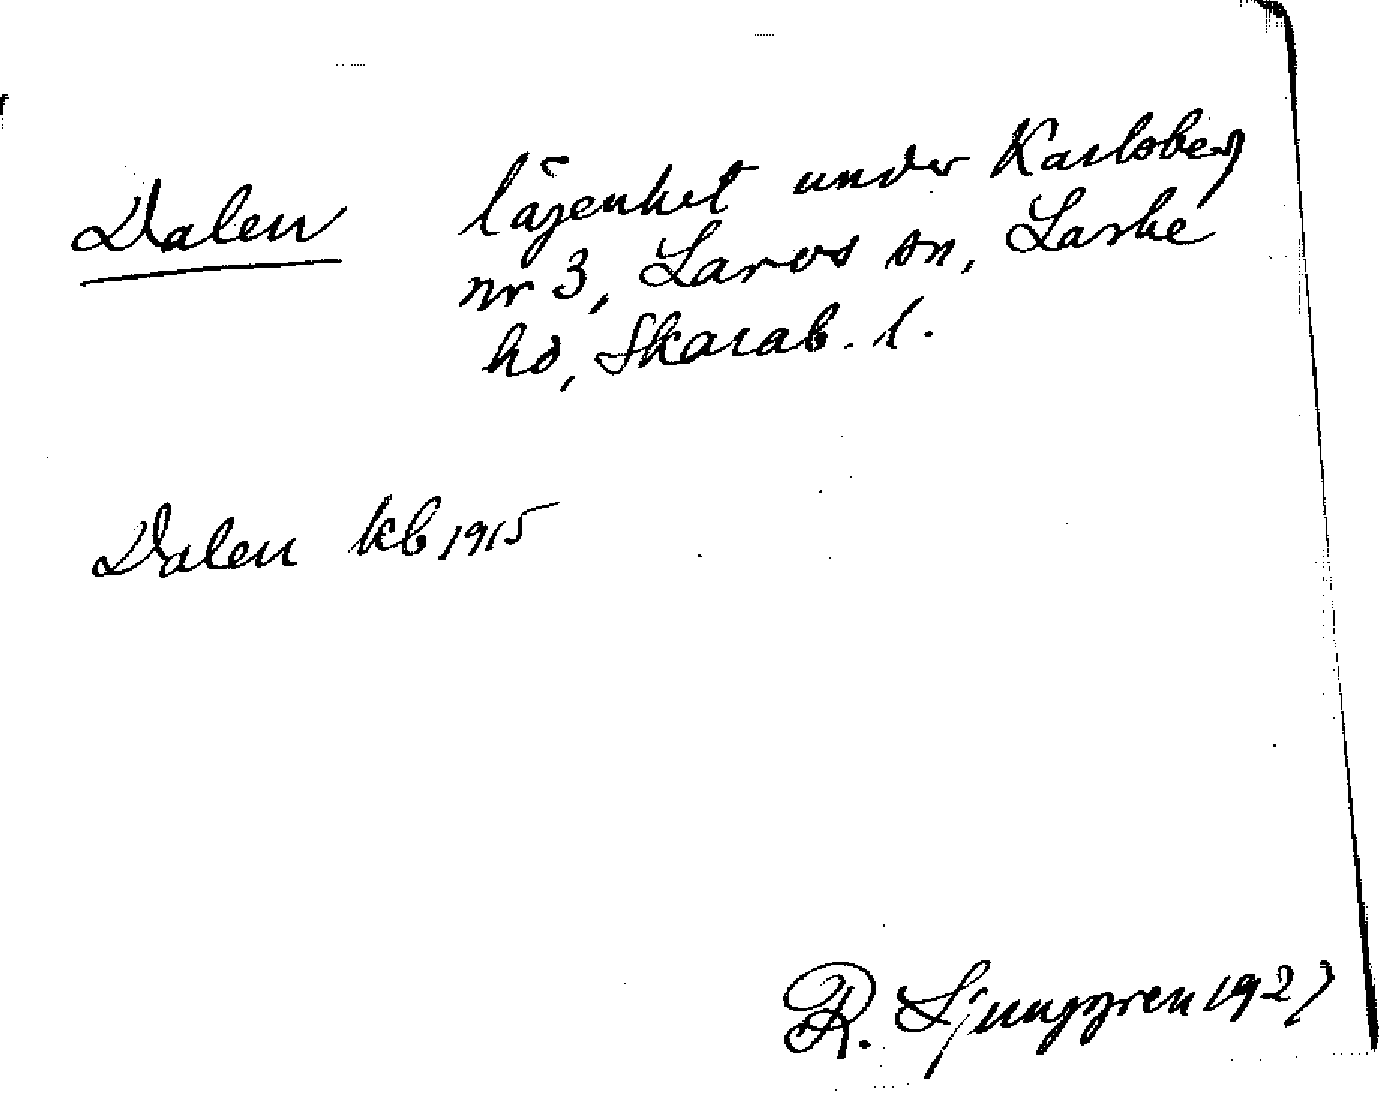 Dalen lägenhet under Karlsberg
nr 3, Larvs sn, Laske
hd, Skarab. l.
Dalen kb 1915
R. Ljunggren 1927